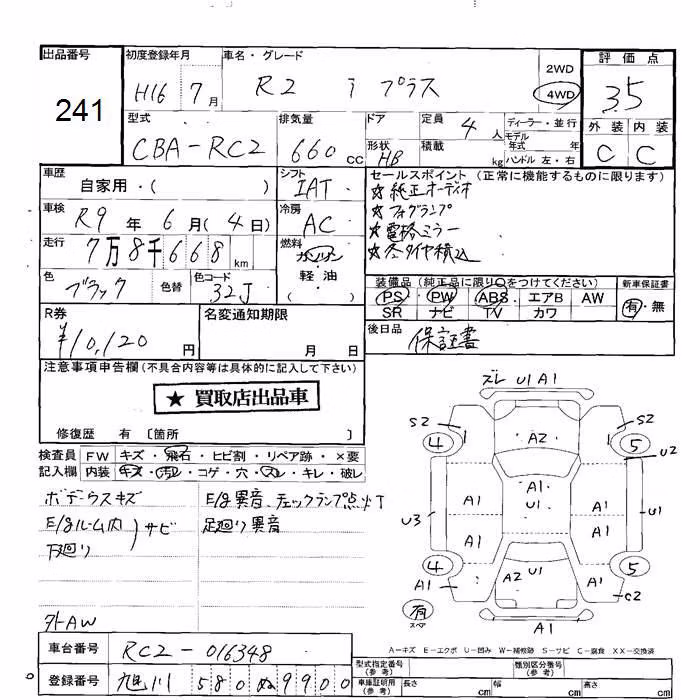 出品番号
241
初度登録年月
H16 7月
車名・グレード
R2 i プラス
2WD
4WD
評価点
3.5
外装 内装
C C
型式
CBA-RC2
排気量
660 cc
ドア
形状
HB
定員 4 人
積載 kg
ディーラー・並行
モデル
年式 年
ハンドル 左・右
車歴
自家用・( )
車検
R9年 6月(4日)
走行
7万8千668 km
色
ブラック
色替
色コード
32J
シフト
IAT
冷房
AC
燃料
ガソリン
軽・油
( )
セールスポイント (正常に機能するものに限ります)
★純正オーディオ
★フォグランプ
★電格ミラー
★冬タイヤ積込
装備品 (純正品に限り○をつけてください)
PS PW ABS エアB AW
SR ナビ TV カワ
新車保証書
有・無
R券
¥10,120 円
名変通知期限
月 日
後日品
保証書
注意事項申告欄(不具合内容等は具体的に記入して下さい)
★ 買取店出品車
修復歴 有 〔箇所 〕
検査員 FW キズ・飛石・ヒビ割・リペア跡・×要
記入欄 内装 キズ・汚レ・コゲ・穴・スレ・キレ・破レ
ボデーウスキズ
E/gルーム内
下廻り
サビ
外AW
E/g異音、チェックランプ点灯
足廻り異音
ズレ U1 A1
S2
S2
4
A2
5
U2
A1
U1
A1
A1
U3
U1
A1
A1
4
5
A1
A1
A2 U1
A1
C2
有
スペア
A1
A-キズ E-エクボ U-凹み W-補修跡 S-サビ C-腐食 XX-交換済
車台番号
RC2-016348
登録番号
旭川 580 ぬ 9900
型式指定番号
(参考)
類別区分番号
(参考)
車庫証明用
(参考)
長さ cm 幅 cm 高さ cm